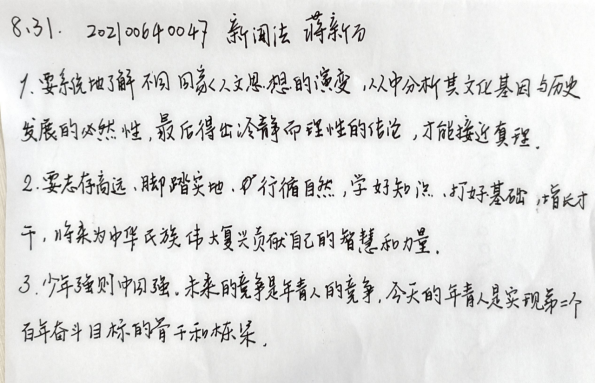 8.31. 202100640047 新闻法 蒋新
1.要系统地了解不同国家人文思想的演变,从中分析其文化基因与历史
发展的必然性,最后得出冷静而理性的结论,才能接近真理.
2.要志存高远、脚踏实地、行循自然,学好知识、打好基础,增长才
干,将来为中华民族伟大复兴贡献自己的智慧和力量.
3.少年强则中国强.未来的竞争是年青人的竞争,今天的年青人是实现第二个
百年奋斗目标的骨干和栋梁.